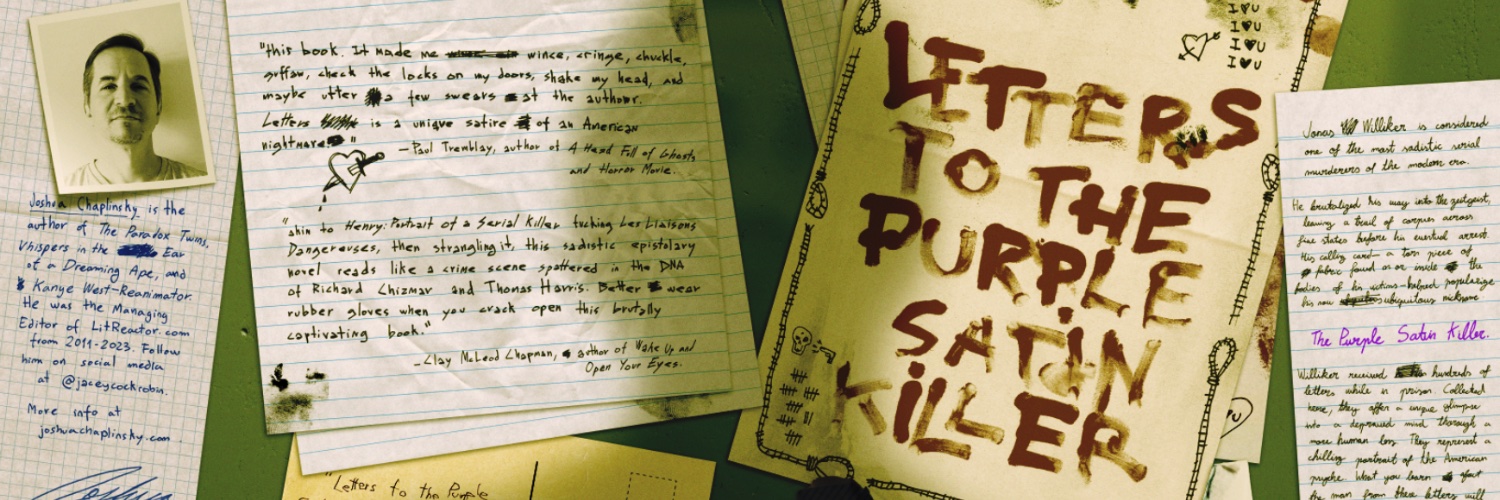 Joshua Chaplinsky is the
author of The Paradox Twins,
Whispers in the Ear
of a Dreaming Ape, and
Kanye West—Reanimator.
He was the Managing
Editor of LitReactor.com
from 2011-2023. Follow
him on social media
at @jaceycockrobin.
More info at
joshuachaplinsky.com
"this book. It made me wince, cringe, chuckle,
guffaw, check the locks on my doors, shake my head, and
maybe utter a few swears at the author.
Letters is a unique satire of an American
nightmare"
—Paul Tremblay, author of A Head Full of Ghosts
and Horror Movie.
"akin to Henry: Portrait of a Serial Killer fucking Les Liaisons
Dangereuses, then strangling it, this sadistic epistolary
novel reads like a crime scene spattered in the DNA
of Richard Chizmar and Thomas Harris. Better wear
rubber gloves when you crack open this brutally
captivating book."
—Clay McLeod Chapman, author of Wake Up and
Open Your Eyes.
"Letters to the Purple
I ♥ U
I ♥ U
I ♥ U
I ♥ U
LETTERS
TO THE
PURPLE
SATIN
KILLER
Jonas Williker is considered
one of the most sadistic serial
murderers of the modern era.
He brutalized his way into the zeitgeist,
leaving a trail of corpses across
five states before his eventual arrest.
His calling card—a torn piece of
fabric found on or inside the
bodies of his victims—helped popularize
his now ubiquitous nickname.
The Purple Satin Killer.
Williker received hundreds of
letters while in prison. Collected
here, they offer a unique glimpse
into a depraved mind through a
more human lens. They represent a
chilling portrait of the American
psyche. What you learn about
the man from these letters will